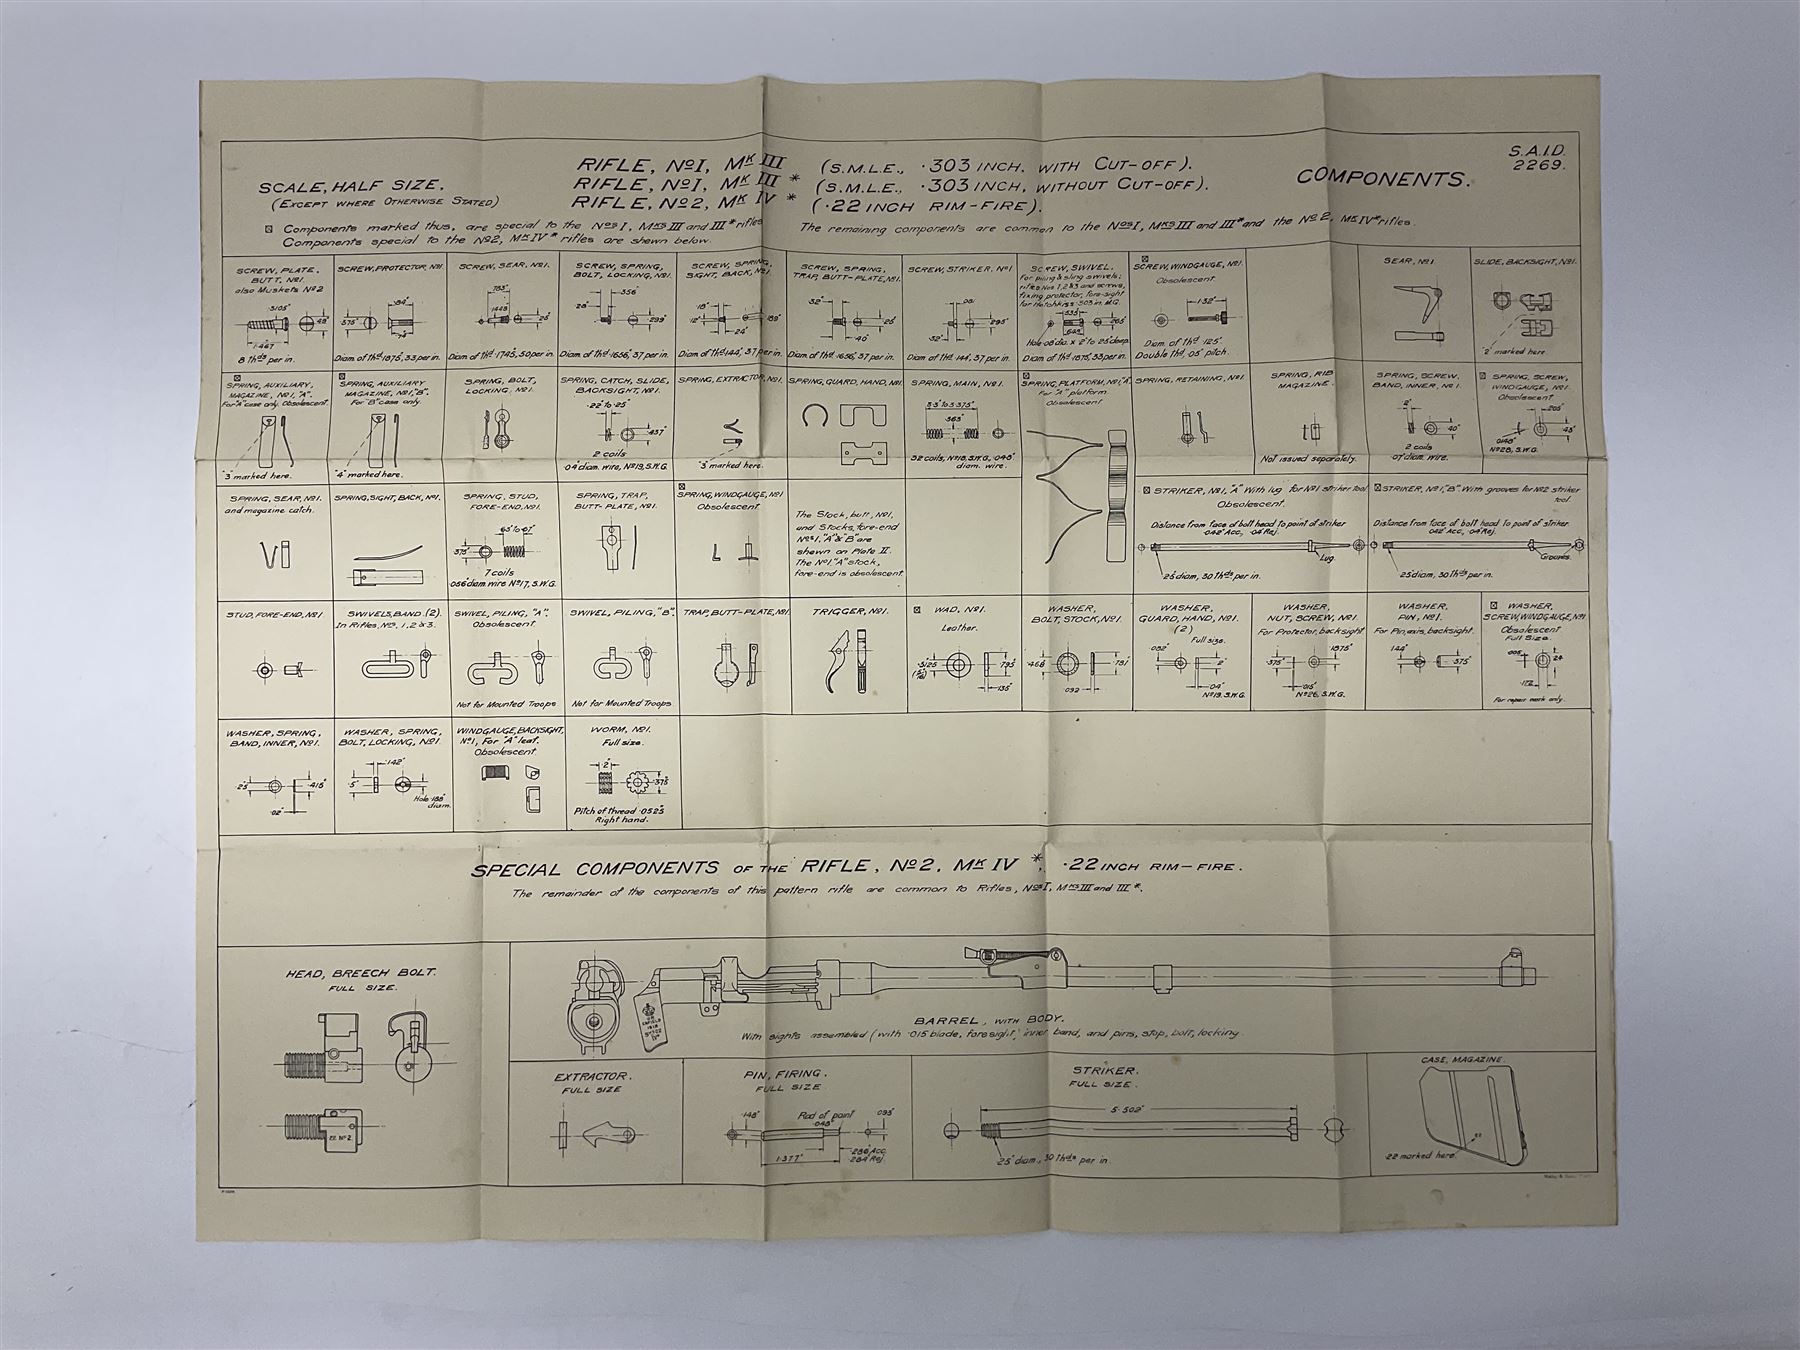 S.A.I.D.
2269.
RIFLE, No I, Mk III (S.M.L.E., ·303 INCH, WITH CUT-OFF).
RIFLE, No I, Mk III * (S.M.L.E., ·303 INCH, WITHOUT CUT-OFF).
RIFLE, No 2, Mk IV * (·22 INCH RIM-FIRE).
COMPONENTS.
SCALE, HALF SIZE.
(EXCEPT WHERE OTHERWISE STATED)
Components marked thus, are special to the Nos I, Mks III and III* rifles
Components special to the No2, Mk IV* rifles are shewn below.
The remaining components are common to the Nos I, Mks III and III* and the No 2, Mk IV* rifles.
SCREW, PLATE,
BUTT, No1.
also Muskets No2
8 thds per in.
SCREW, PROTECTOR, No1
Diam of thd ·1875, 33 per in.
SCREW, SEAR, No1.
Diam of thd ·1745, 30 per in.
SCREW, SPRING,
BOLT, LOCKING, No1
Diam of thd ·1656, 37 per in.
SCREW, SPRING,
SIGHT, BACK, No1
Diam of thd ·144, 37 per in.
SCREW, SPRING,
TRAP, BUTT-PLATE, No1.
Diam of thd ·1656, 37 per in.
SCREW, STRIKER, No1
Diam of thd ·144, 37 per in.
SCREW, SWIVEL.
For piling & sling swivels;
rifles Nos 1, 2 & 3 and screws,
fixing protector, fore-sight
for Hotchkiss ·303 in. M.G.
Diam of thd ·1875, 33 per in.
SCREW, WINDGAUGE, No1.
Obsolescent.
1·32"
Diam. of thd ·125"
Double thd, ·05" pitch.
SEAR, No1
SLIDE, BACKSIGHT, No1.
"2" marked here.
SPRING, AUXILIARY,
MAGAZINE, No1, "A".
For "A" case only. Obsolescent.
"3" marked here.
SPRING, AUXILIARY
MAGAZINE, No1, "B".
For "B" case only.
"4" marked here.
SPRING, BOLT,
LOCKING, No1
SPRING, CATCH, SLIDE,
BACKSIGHT, No1.
·22" to ·25"
·437"
2 coils
·04" diam. wire, No19, S.W.G.
SPRING, EXTRACTOR, No1.
"3" marked here.
SPRING, GUARD, HAND, No1.
SPRING, MAIN, No1.
3·3" to 3·375"
32 coils, No18, S.W.G., ·048"
diam. wire.
SPRING, PLATFORM, No1, "A".
For "A" platform
Obsolescent.
SPRING, RETAINING, No1.
SPRING, RIB
MAGAZINE.
Not issued separately.
SPRING, SCREW,
BAND, INNER, No1.
2 coils
SPRING, SCREW,
WINDGAUGE, No1
Obsolescent
·0148"
No28, S.W.G.
SPRING, SEAR, No1.
and magazine catch.
SPRING, SIGHT, BACK, No1.
SPRING, STUD,
FORE-END, No1.
7 coils
·056" diam wire No17, S.W.G.
SPRING, TRAP,
BUTT-PLATE, No1.
SPRING, WINDGAUGE, No1
Obsolescent
The Stock, butt, No1,
and Stocks, fore-end
No1, "A" & "B" are
shewn on Plate II.
The No1 "A" stock,
fore-end is obsolescent.
STRIKER, No1, "A" With lug for No1 striker tool
Obsolescent.
Distance from face of bolt head to point of striker
·042" Acc., ·04" Rej.
Lug.
·25" diam, 30 thds per in.
STRIKER, No1, "B". With grooves for No2 striker
tool.
Distance from face of bolt head to point of striker.
·042" Acc., ·04" Rej.
Grooves.
·25" diam, 30 thds per in.
STUD, FORE-END, No1
SWIVELS, BAND (2).
In Rifles, Nos. 1, 2 & 3.
SWIVEL, PILING, "A".
Obsolescent
Not for Mounted Troops
SWIVEL, PILING, "B".
Not for Mounted Troops.
TRAP, BUTT-PLATE, No1
TRIGGER, No1.
WAD, No1.
Leather.
WASHER,
BOLT, STOCK, No1.
WASHER,
GUARD, HAND, No1
(2)
Full size.
No19, S.W.G.
WASHER,
NUT, SCREW, No1
For Protector, backsight
No26, S.W.G.
WASHER,
PIN, No1.
For Pin, axis, backsight.
WASHER,
SCREW, WINDGAUGE, No1
Obsolescent
Full Size.
For repair work only.
WASHER, SPRING,
BAND, INNER, No1.
WASHER, SPRING,
BOLT, LOCKING, No1
·142"
Hole ·188"
diam.
WINDGAUGE, BACKSIGHT,
No1, For "A" leaf.
Obsolescent
WORM, No1.
Full size.
·2"
·375"
Pitch of thread ·0525"
Right hand.
SPECIAL COMPONENTS OF THE RIFLE, No 2, Mk IV *, ·22 INCH RIM-FIRE.
The remainder of the components of this pattern rifle are common to Rifles, Nos I, Mks III and III*.
HEAD, BREECH BOLT.
FULL SIZE.
22 No 2.
ENFIELD
BARREL, WITH BODY.
With sights assembled (with ·015 blade, foresight) inner band, and pins, stop, bolt, locking.
EXTRACTOR.
FULL SIZE
PIN, FIRING.
FULL SIZE
·148"
Rad of point
·048"
·093"
1·377"
·286 Acc.
·284 Rej.
STRIKER.
FULL SIZE.
5·502"
·25" diam., 30 thds per in.
CASE, MAGAZINE.
22
22 marked here.